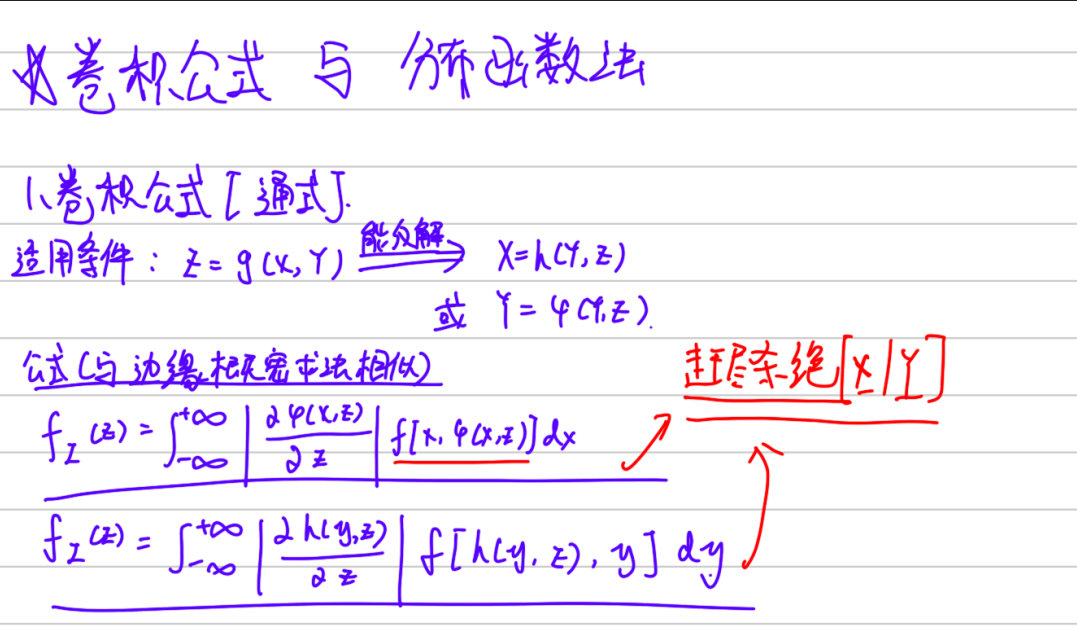 卷积公式 与 分布函数法
1、卷积公式[通式].
适用条件: Z=g(X,Y) 能分解 X=h(Y,Z)
或 Y=φ(Y,Z).
公式(与边缘概密求法相似)
赶尽杀绝[X/Y]
f_Z(z)=∫_{-∞}^{+∞} |∂φ(x,z)/∂z| f[x,φ(x,z)]dx
f_Z(z)=∫_{-∞}^{+∞} |∂h(y,z)/∂z| f[h(y,z),y] dy